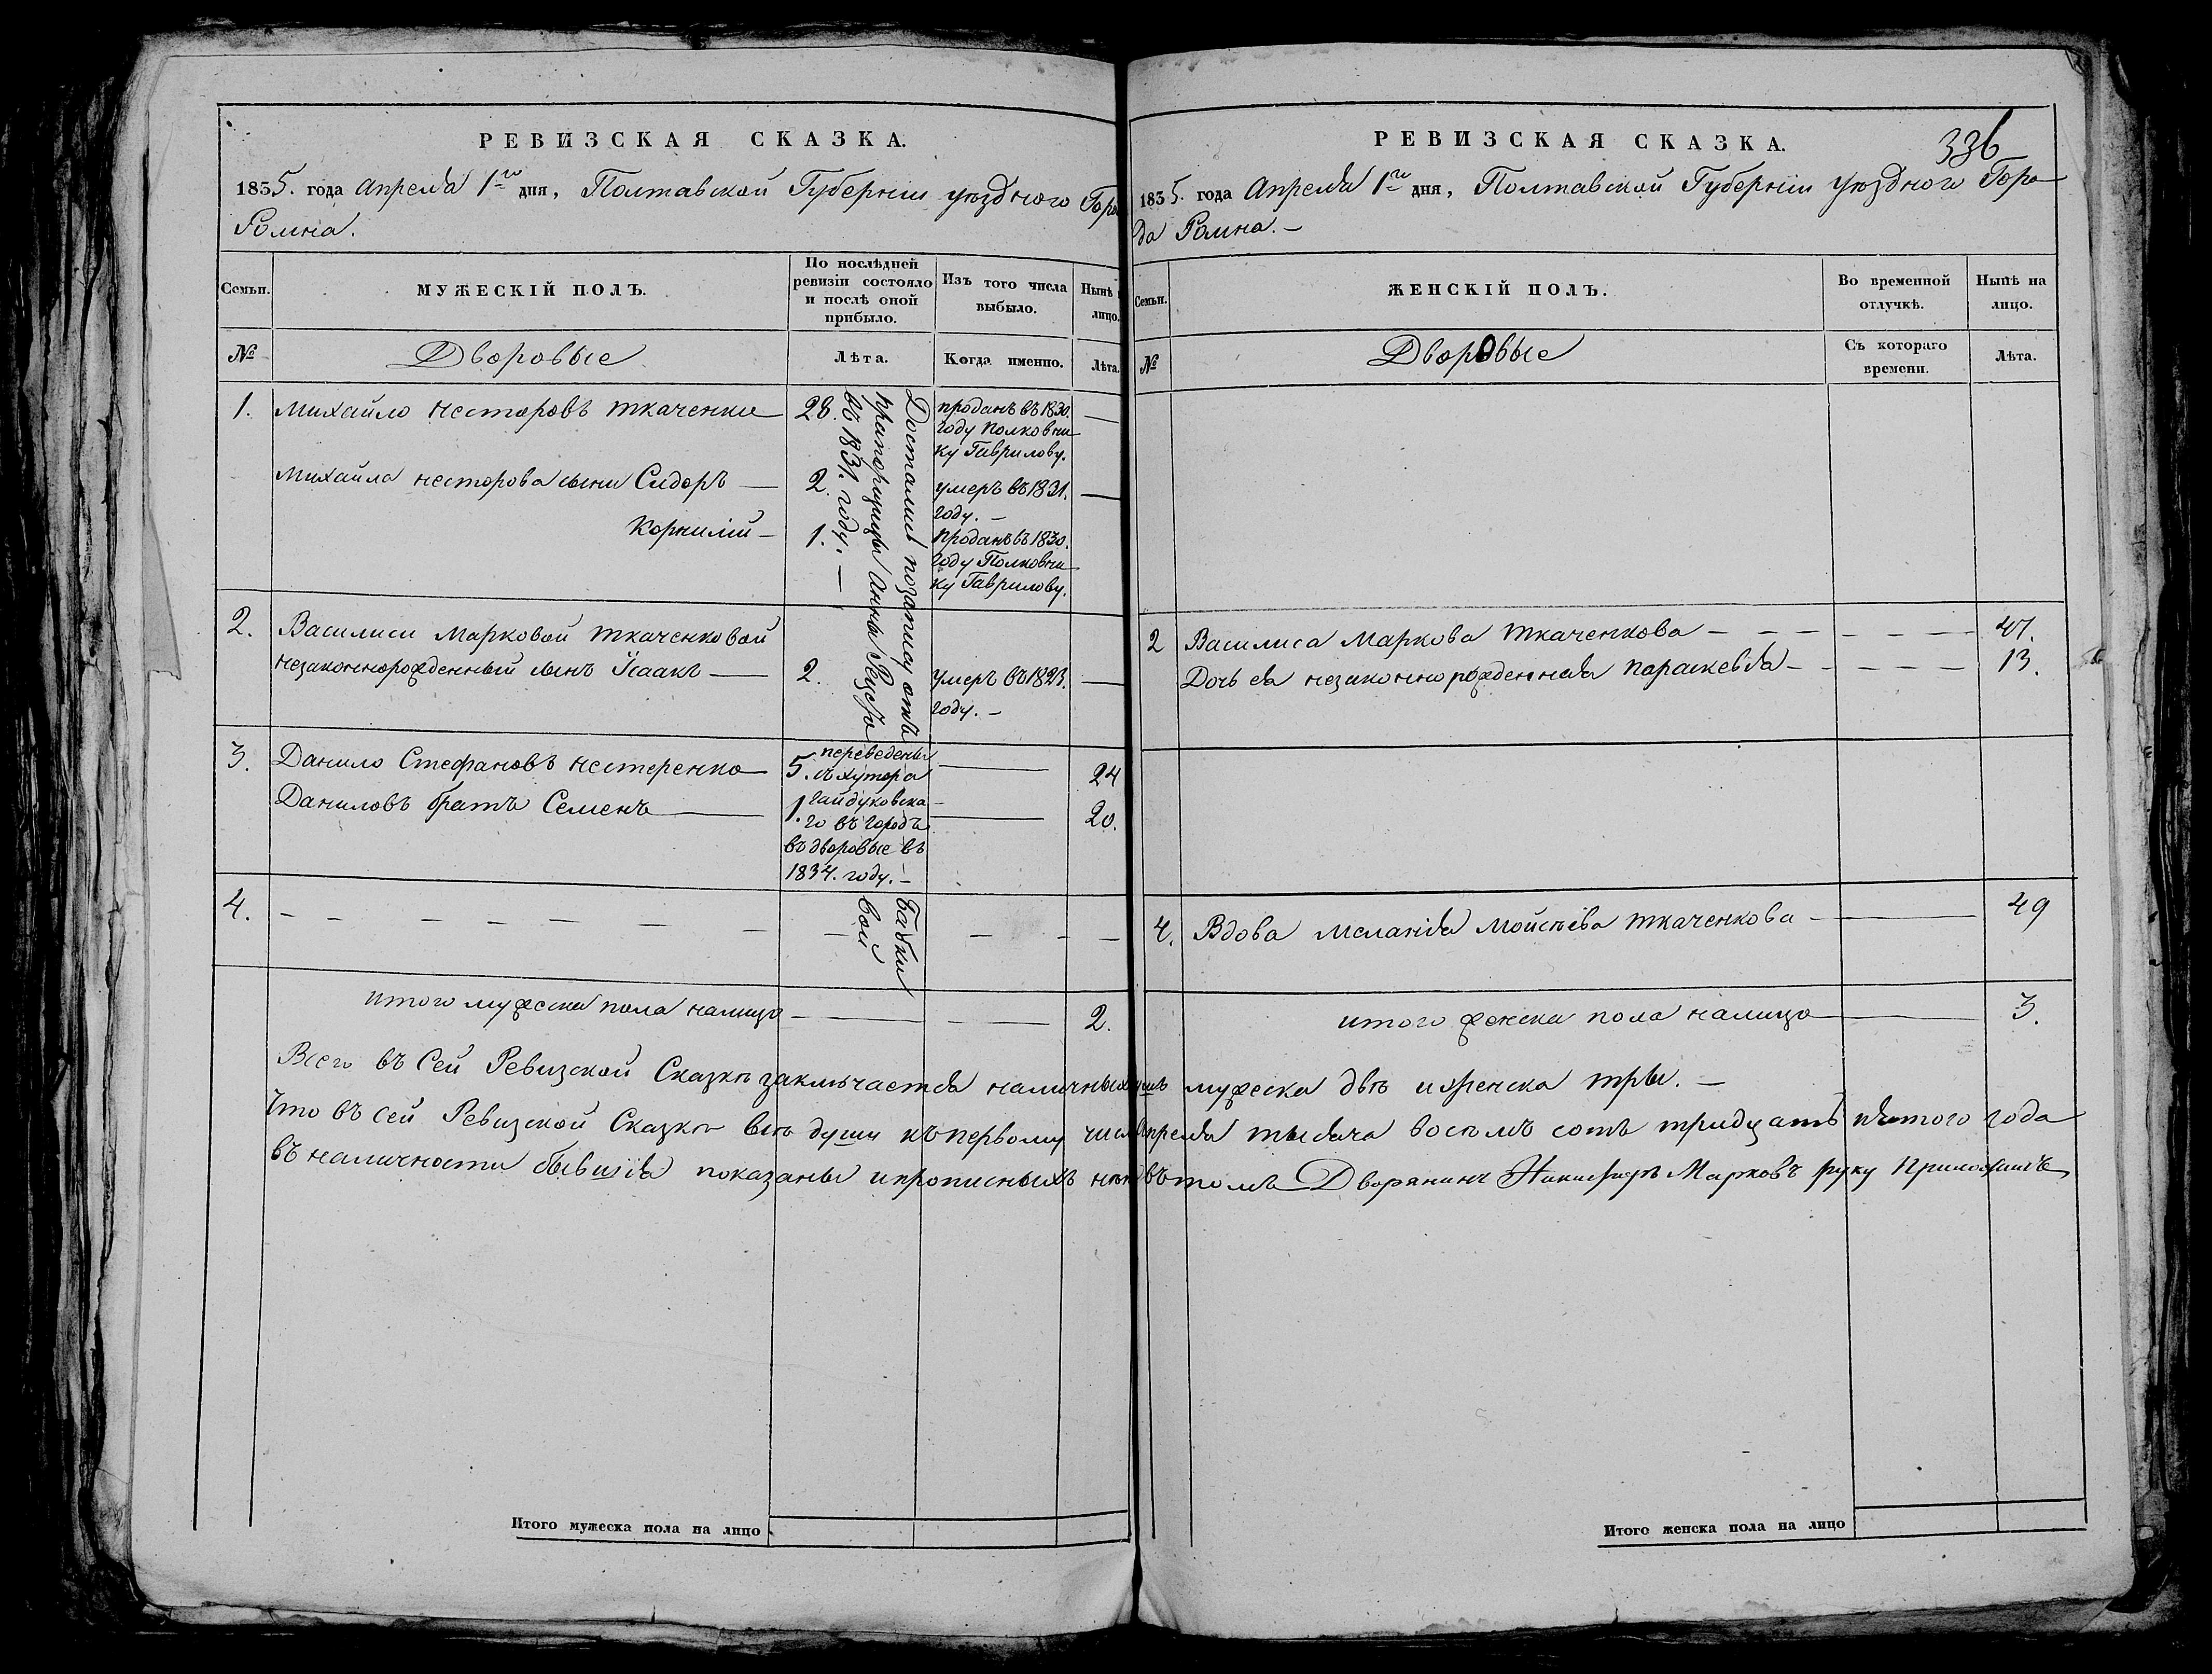 РЕВИЗСКАЯ СКАЗКА.
1835. года Апреля 1го дня, Полтавской Губерніи уезднаго Горо
Ромна.
Семьи.
МУЖЕСКІЙ ПОЛЪ.
По послѣдней
ревизіи состояло
и послѣ оной
прибыло.
Изъ того числа
выбыло.
Нынѣ
лицо.
№
Дворовые
Лѣта.
Когда именно.
Лѣта.
1. Михайло Несторовъ Ткаченко 28. проданъ въ 1830. —
году Полковни
ку Гаврилову.
Михайла Несторова сыни Сидоръ — 2. умеръ въ 1831. —
году. —
Корнилій — 1. проданъ въ 1830.
году Полковни
ку Гаврилову.
Достались позаписи отъ
прапорщицы Анны Рузсъ
въ 1831. году. —
Бабки
вой
2. Василиси Марковой Ткаченковой
незаконнорожденный сынъ Ісаакъ — 2. умеръ въ 1823. —
году. —
3. Данило Стефановъ Нестеренко 5. — 24
Даниловъ братъ Семенъ — 1. — 20.
переведены
съ хутора
Гайдуковска
го въ городъ
въ дворовые въ
1834. году. —
4. — — — — — — — — — — —
итого мужеска пола налицо — — — 2.
Всего въ Сей Ревизской Сказкѣ заключается наличныхъ
Что въ сей Ревизской Сказкѣ всѣ души къ первому числу
въ наличности бывшія показаны и прописныхъ нѣтъ
Итого мужеска пола на лицо
РЕВИЗСКАЯ СКАЗКА.
336
1835. года Апреля 1го дня, Полтавской Губерніи уезднаго Горо
да Ромна. —
Семьи.
ЖЕНСКІЙ ПОЛЪ.
Во временной
отлучкѣ.
Нынѣ на
лицо.
№
Дворовые
Съ котораго
времени.
Лѣта.
2 Василиса Маркова Ткаченкова — — — — — — 47.
Дочь ея незаконнорожденная Параскевья — — — — — 13.
4. Вдова Меланія Мойсѣева Ткаченкова — 49
итого женска пола налицо — 3.
мужеска двѣ и женска три. —
Апреля тысяча восемъ сотъ тридцать пятого года
въ томъ Дворянинъ Никифоръ Марковъ руку Приложилъ
Итого женска пола на лицо